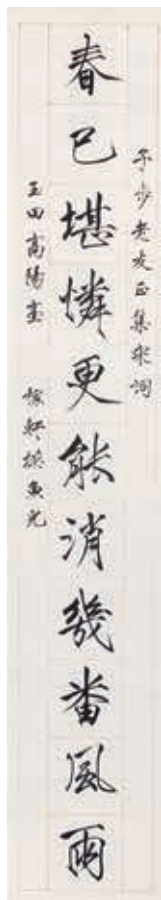 子步老友正集宋詞
春已堪憐更能消幾番風雨
玉田高陽臺 稼軒摸魚兒